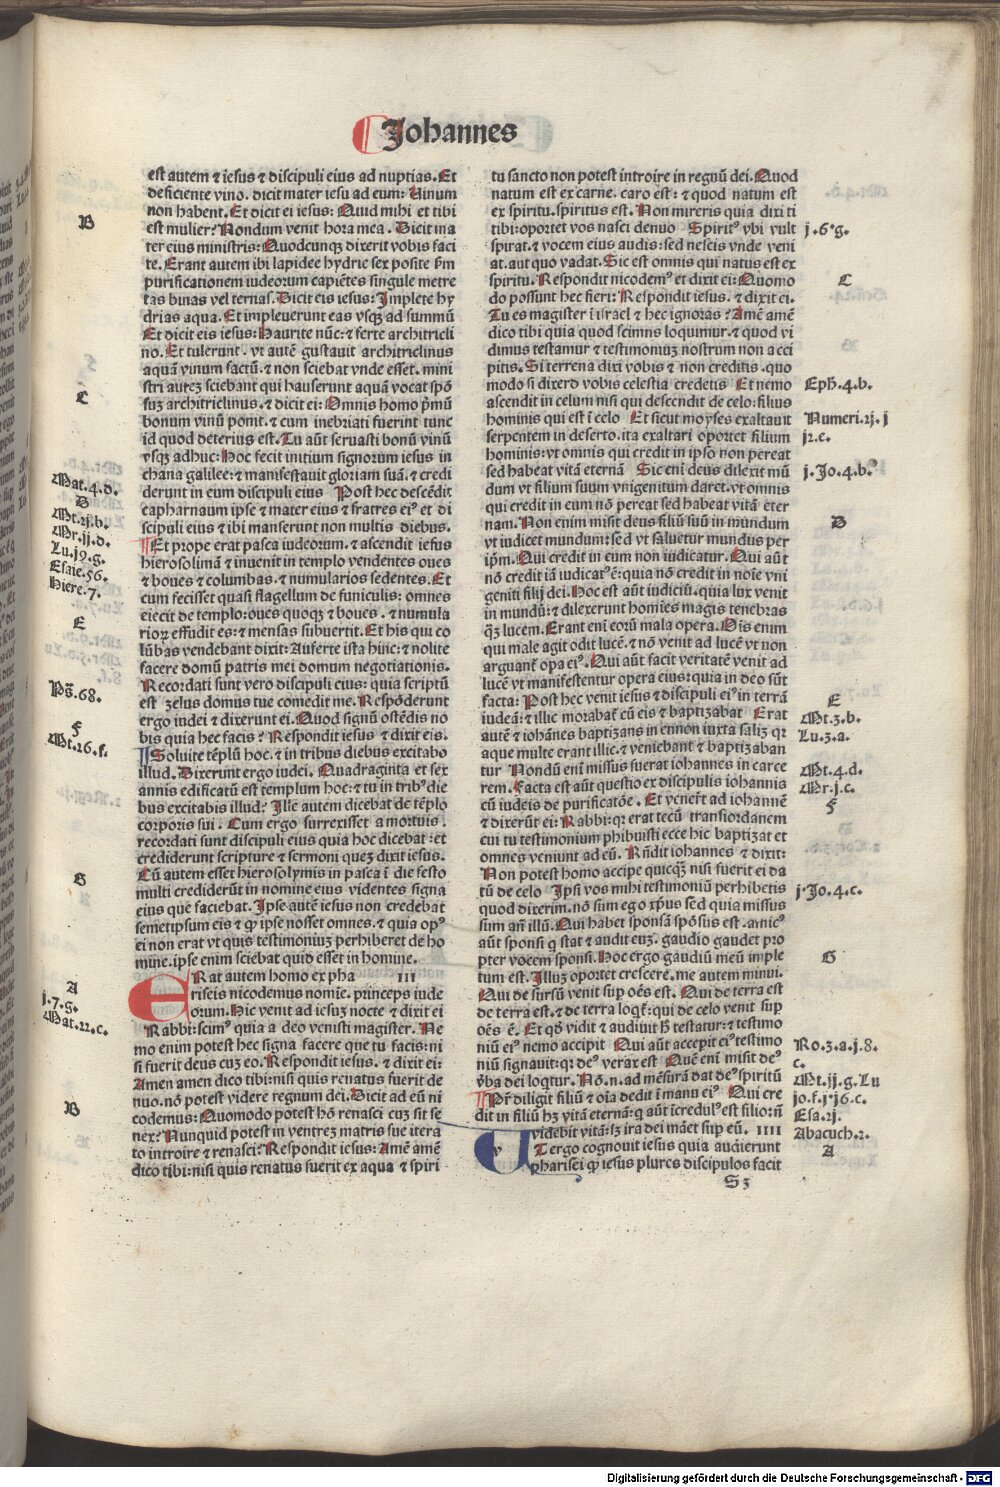 Johannes
est autem ⁊ iesus ⁊ discipuli eius ad nuptias. Et
deficiente vino. dicit mater iesu ad eum: Uinum
non habent. Et dicit ei iesus: Quid mihi et tibi
est mulier? Nondum venit hora mea. Dicit ma
ter eius ministris: Quodcunqꝫ dixerit vobis faci
te. Erant autem ibi lapidee hydrie sex posite ẜm
purificationem iudeorum capiētes singule metre
tas binas vel ternas. Dicit eis iesus: Implete hy
drias aqua. Et impleverunt eas vsqꝫ ad summū
Et dicit eis iesus: Haurite nūc: ⁊ ferte architricli
no. Et tulerunt. vt autē gustauit architriclinus
aquā vinum factū. ⁊ non sciebat vnde esset. mini
stri auteꝫ sciebant qui hauserunt aquā vocat spō
suꝫ architriclinus. ⁊ dicit ei: Omnis homo pͥmū
bonum vinū ponit. ⁊ cum inebriati fuerint tunc
id quod deterius est. Tu aūt seruasti bonū vinū
vsqꝫ adhuc: Hoc fecit initium signorum iesus in
chana galilee: ⁊ manifestauit gloriam suā. ⁊ credi
derunt in eum discipuli eius Post hec descēdit
capharnaum ipse ⁊ mater eius ⁊ fratres eiꝰ et di
scipuli eius ⁊ ibi manserunt non multis diebus.
¶ Et prope erat pasca iudeorum. ⁊ ascendit iesus
hierosolimā ⁊ inuenit in templo vendentes oues
⁊ boues ⁊ columbas. ⁊ numularios sedentes. Et
cum fecisset quasi flagellum de funiculis: omnes
eiecit de templo: oues quoqꝫ ⁊ boues. ⁊ numula
rioꝝ effudit es: ⁊ mensas subuertit. Et his qui co
lūbas vendebant dixit: Auferte ista hinc: ⁊ nolite
facere domū patris mei domum negotiationis.
Recordati sunt vero discipuli eius: quia scriptū
est zelus domus tue comedit me. Respōderunt
ergo iudei ⁊ dixerunt ei. Quod signū ostēdis no
bis quia hec facis? Respondit iesus ⁊ dixit eis.
¶ Soluite tēplū hoc. ⁊ in tribus diebus excitabo
illud. Dixerunt ergo iudei. Quadraginta et sex
annis edificatū est templum hoc: ⁊ tu in tribꝰ die
bus excitabis illud? Ille autem dicebat de tēplo
corporis sui. Cum ergo surrexisset a mortuis.
recordati sunt discipuli eius quia hoc dicebat: et
crediderunt scripture ⁊ sermoni queꝫ dixit iesus.
Cū autem esset hierosolymis in pasca ī die festo
multi crediderūt in nomine eius videntes signa
eius que faciebat. Ipse autē iesus non credebat
semetipsum eis ⁊ ꝙ ipse nosset omnes. ⁊ quia opꝰ
ei non erat vt quis testimoniuꝫ perhiberet de ho
mine. ipse enim sciebat quid esset in homine.
ERat autem homo ex pha III
riseis nicodemus nomīe. princeps iude
orum. Hic venit ad iesuꝫ nocte ⁊ dixit ei
Rabbi: scimꝰ quia a deo venisti magister. Ne
mo enim potest hec signa facere que tu facis: ni
si fuerit deus cuꝫ eo. Respondit iesus. ⁊ dixit ei:
Amen amen dico tibi: nisi quis renatus fuerit de
nuo. nō potest videre regnum dei. Dicit ad eū ni
codemus: Quomodo potest hō renasci cuꝫ sit se
nex? Nunquid potest in ventreꝫ matris sue itera
to introire ⁊ renasci? Respondit iesus: Amē amē
dico tibi: nisi quis renatus fuerit ex aqua ⁊ spiri
B
C
Mat.4.d.
D
Mt.2j.b.
Mr.jj.d.
Lu.j9.g.
Esaie.56.
Hiere.7.
E
Pṡ.68.
F
Mt.26.f.
G
A
j.7.g.
Mat.22.c.
B
tu sancto non potest introire in regnū dei. Quod
natum est ex carne. caro est: ⁊ quod natum est
ex spiritu. spiritus est. Non mireris quia dixi ti
tibi: oportet vos nasci denuo Spiritꝰ vbi vult
spirat. ⁊ vocem eius audis: sed nescis vnde veni
at. aut quo vadat. Sic est omnis qui natus est ex
spiritu. Respondit nicodemꝰ et dixit ei: Quomo
do possunt hec fieri: Respondit iesus. ⁊ dixit ei.
Tu es magister ī israel ⁊ hec ignoras? Amē amē
dico tibi quia quod scimus loquimur. ⁊ quod vi
dimus testamur ⁊ testimoniuꝫ nostrum non acci
pitis. Si terrena dixi vobis ⁊ non creditis. quo
modo si dixero vobis celestia credetis Et nemo
ascendit in celum nisi qui descendit de celo: filius
hominis qui est ī celo Et sicut moyses exaltauit
serpentem in deserto. ita exaltari oportet filium
hominis: vt omnis qui credit in ipso non pereat
sed habeat vitā eternā Sic enī deus dilexit mū
dum vt filium suum vnigenitum daret. vt omnis
qui credit in eum nō pereat sed habeat vitā eter
nam. Non enim misit deus filiū suū in mundum
vt iudicet mundum: sed vt saluetur mundus per
ip̄m. Qui credit in eum non iudicatur. Qui aūt
nō credit iā iudicatꝰ ē: quia nō credit in noīe vni
geniti filij dei. Hoc est aūt iudiciū. quia lux venit
in mundū: ⁊ dilexerunt homīes magis tenebras
qꝫ lucem. Erant enī eorū mala opera. Ois enim
qui male agit odit lucē. ⁊ nō venit ad lucē vt non
arguant̄ opa eiꝰ. Qui aūt facit veritatē venit ad
lucē vt manifestentur opera eius: quia in deo sūt
facta: Post hec venit iesus ⁊ discipuli eiꝰ in terrā
iudeā: ⁊ illic morabat̄ cū eis ⁊ baptizabat Erat
autē ⁊ iohānes baptizans in ennon iuxta saliꝫ qꝛ
aque multe erant illic. ⁊ veniebant ⁊ baptizaban
tur Nondū enī missus fuerat iohannes in carce
rem. Facta est aūt questio ex discipulis iohannis
cū iudeis de purificatōe. Et venert̄ ad iohannē
⁊ dixerūt ei: Rabbi: qꝛ erat tecū transiordanem
cui tu testimonium phibuisti ecce hic baptizat et
omnes veniunt ad eū. Rn̄dit iohannes ⁊ dixit:
Non potest homo accipe quicqꝫ nisi fuerit ei da
tū de celo Ipsi vos mihi testimoniū perhibetis
quod dixerim. nō sum ego xp̄us sed quia missus
sum an̄ illū. Qui habet sponsā spōsus est. amicꝰ
aūt sponsi q̇ stat ⁊ audit euꝫ. gaudio gaudet pro
pter vocem sponsi. Hoc ergo gaudiū meū imple
tum est. Illuꝫ oportet crescere. me autem minui.
Qui de sursū venit sup oēs est. Qui de terra est
de terra est. ⁊ de terra loqt̄: qui de celo venit sup
oēs ē. Et qđ vidit ⁊ audiuit h̄ testatur: ⁊ testimo
niū eiꝰ nemo accipit Qui aūt accepit eiꝰ testimo
niū signauit: qꝛ deꝰ verax est Quē enī misit deꝰ
v̄ba dei loqtur. Nō. n. ad mēsurā dat deꝰ spiritū
¶ Pr̄ diligit filiū ⁊ oīa dedit ī manu eiꝰ Qui cre
dit in filiū hꝫ vitā eternā: q̇ aūt īcredulꝰ est filio: nō
videbit vitā: sꝫ ira dei māet sup eū. IIII
UT ergo cognouit iesus quia audierunt
pharisei ꝙ iesus plures discipulos facit
S3
j.6.g.
C
Eph.4.b.
Numeri.2j.
j2.c.
j.Jo.4.b.
D
E
Mt.3.b.
Lu.3.a.
Mt.4.d.
Mr.j.c.
F
j.Jo.4.c.
G
Ro.3.a.j.8.
c.
Mt.jj.g.Lu
jo.f.j.j6.c.
Esa.2j.
Abacuch.2.
A
Digitalisierung gefördert durch die Deutsche Forschungsgemeinschaft - DFG